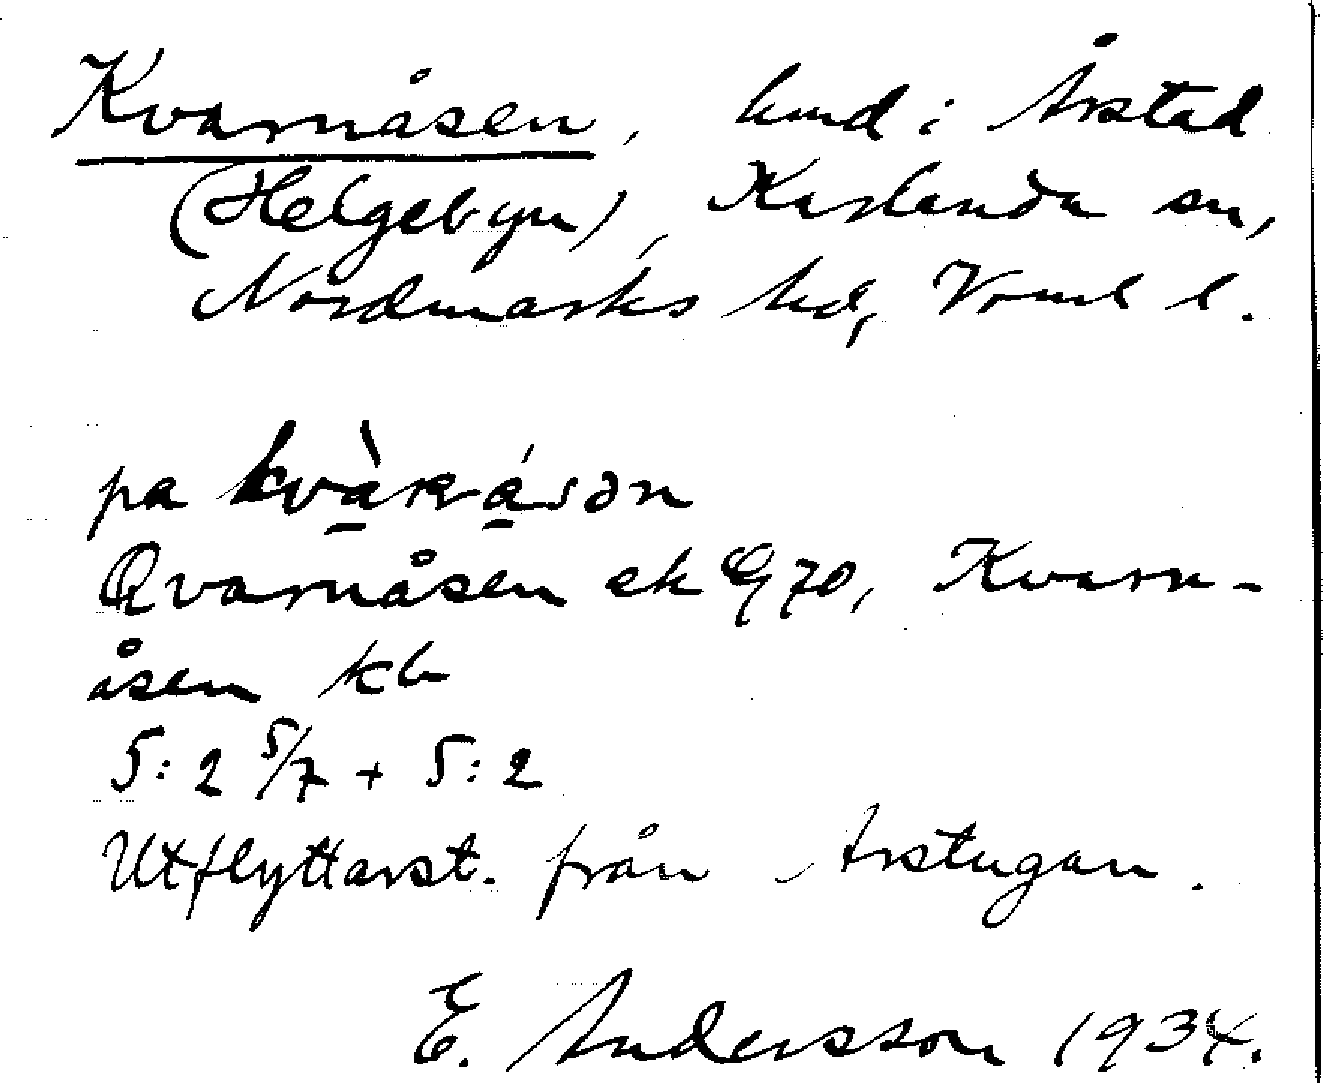 Kvarnåsen, hmd i Årstad
(Helgebyn), Karlanda sn,
Nordmarks hd, Vrml l.
pa kvà̱ʀá̱sən
Qvarnåsen ek G 70, Kvarn-
åsen kb
5:2 5/7 + 5:2
Utflyttarst. från Arstugan.
E. Andersson 1934.